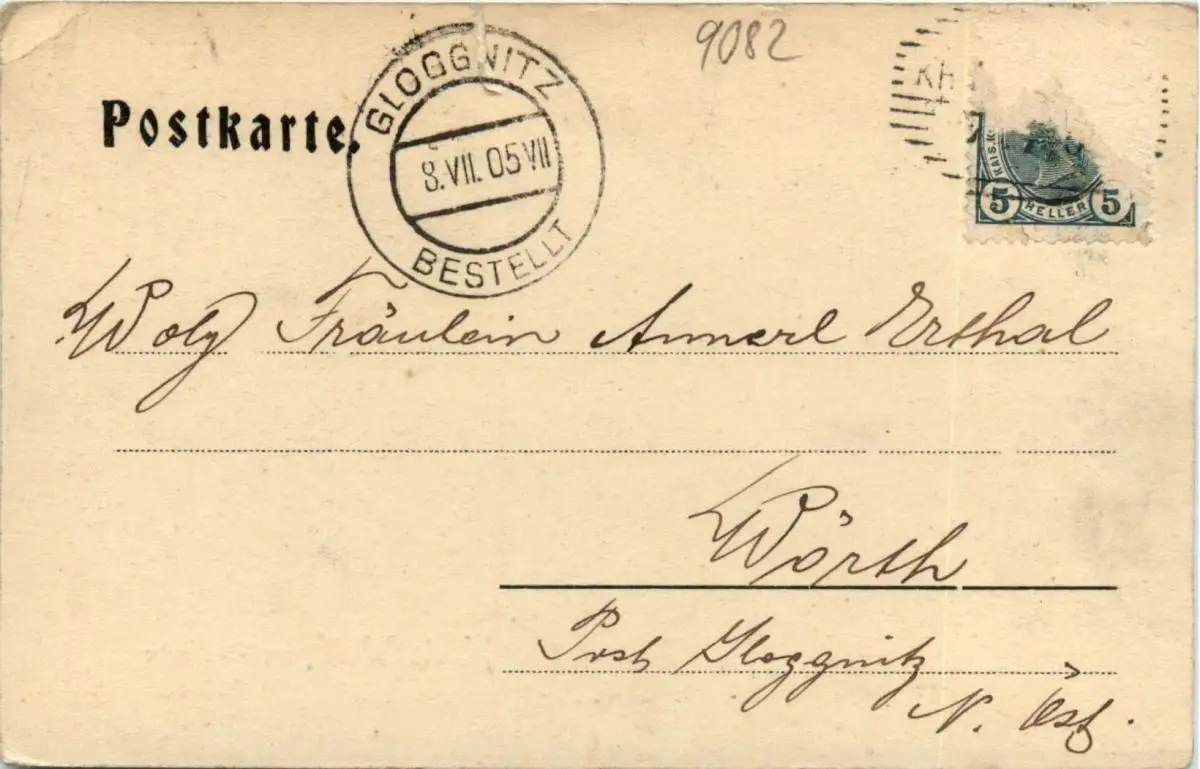 9082
Postkarte.
GLOGGNITZ
8.VII.05 VII
BESTELLT
KAIS.K
5 HELLER 5
Wolg Fräulein Annerl Erthal
Wörth
Post Gloggnitz
N. Öst.